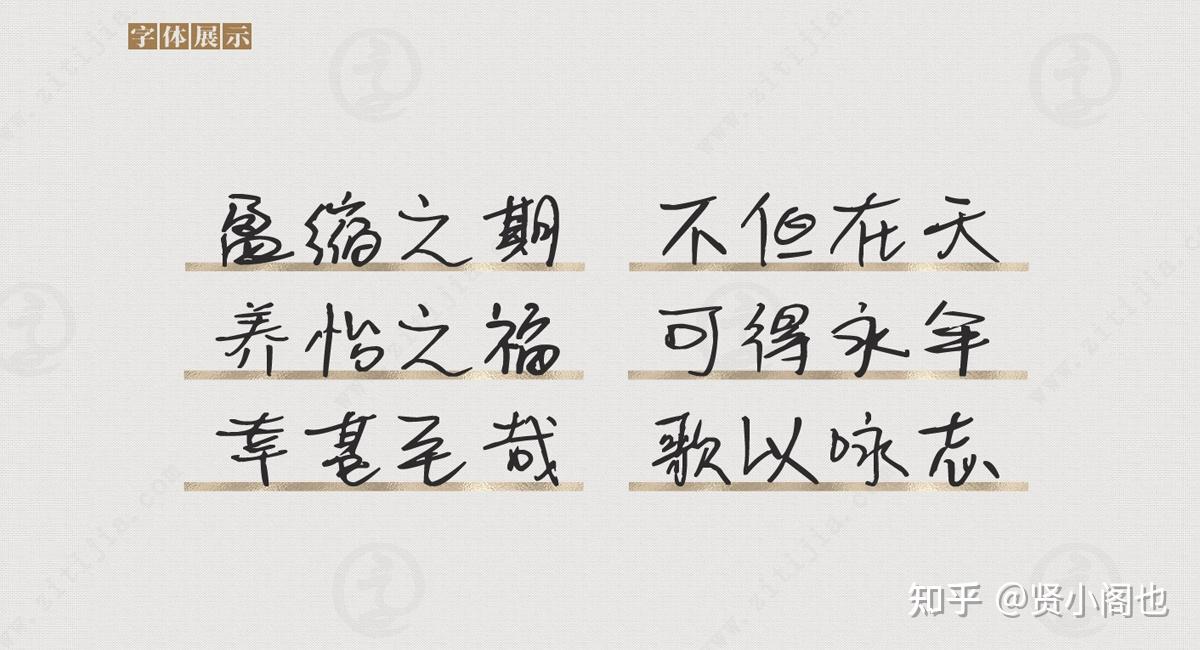 字体展示
盈缩之期 不但在天
养怡之福 可得永年
幸甚至哉 歌以咏志
知乎 @贤小阁也
www.zitijia.com